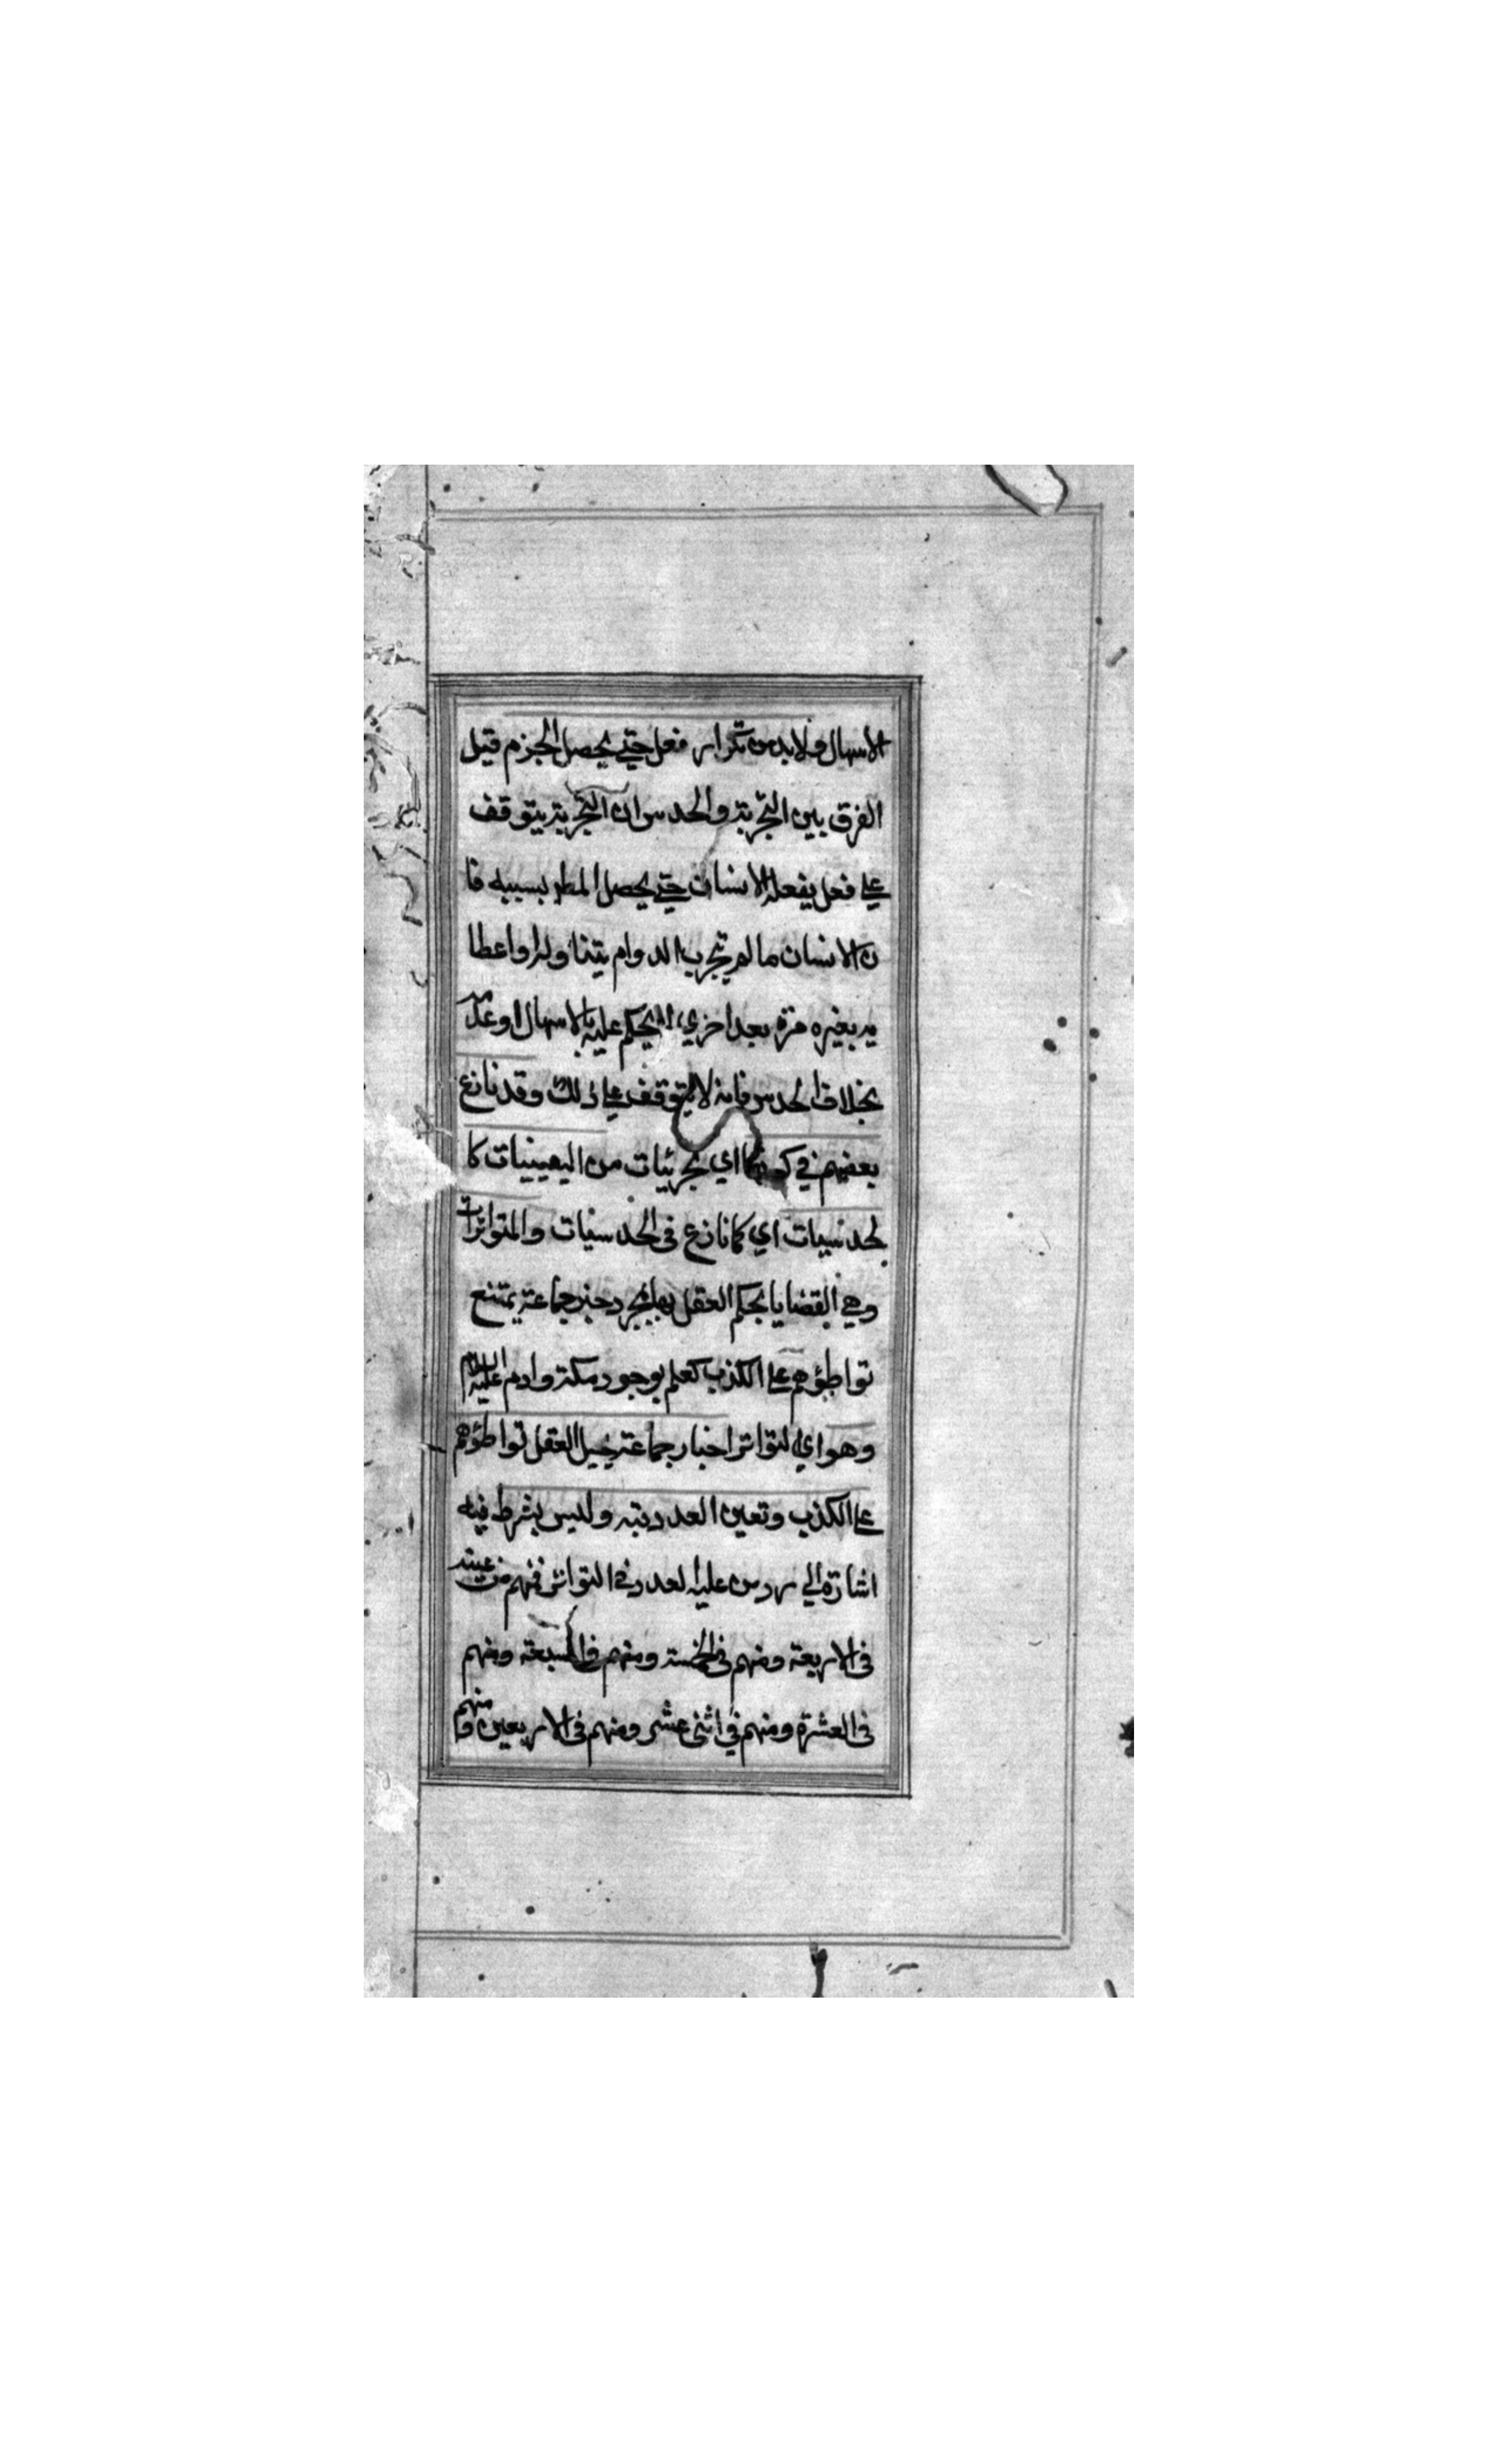 الاسهال ولا بد من تكرار فعل حتى يحصل الجزم قيل
الفرق بين التجربة والحدس ان التجربة يتوقف
على فعل يفعله الانسان حتى يحصل المط بسببه فا
ن الانسان ما لم يجرب الدوام بتناوله او اعطا
يه بغيره مرة بعد اخرى لا يحكم عليه بالاسهال او عدمه
بخلاف الحدس فانه لا يتوقف على ذلك وقد نازع
بعضهم في كونها اي تجربيات من اليقينيات كا
لحدسيات اي كما نازع في الحدسيات والمتواترات
وهي القضايا يحكم العقل بها بمجرد خبر جماعة يمتنع
تواطؤهم على الكذب كعلم بوجود مكة وادم عليه السلام
وهو اي التواتر اخبار جماعة يحيل العقل تواطؤهم
على الكذب وتعين العدد فيه وليس بشرط فيه
اشارة الى رد من عليه العدد في التواتر فمنهم من عينه
في الاربعة ومنهم في الخمسة ومنهم في السبعة ومنهم
في العشرة ومنهم في اثني عشر ومنهم في الاربعين ومنهم